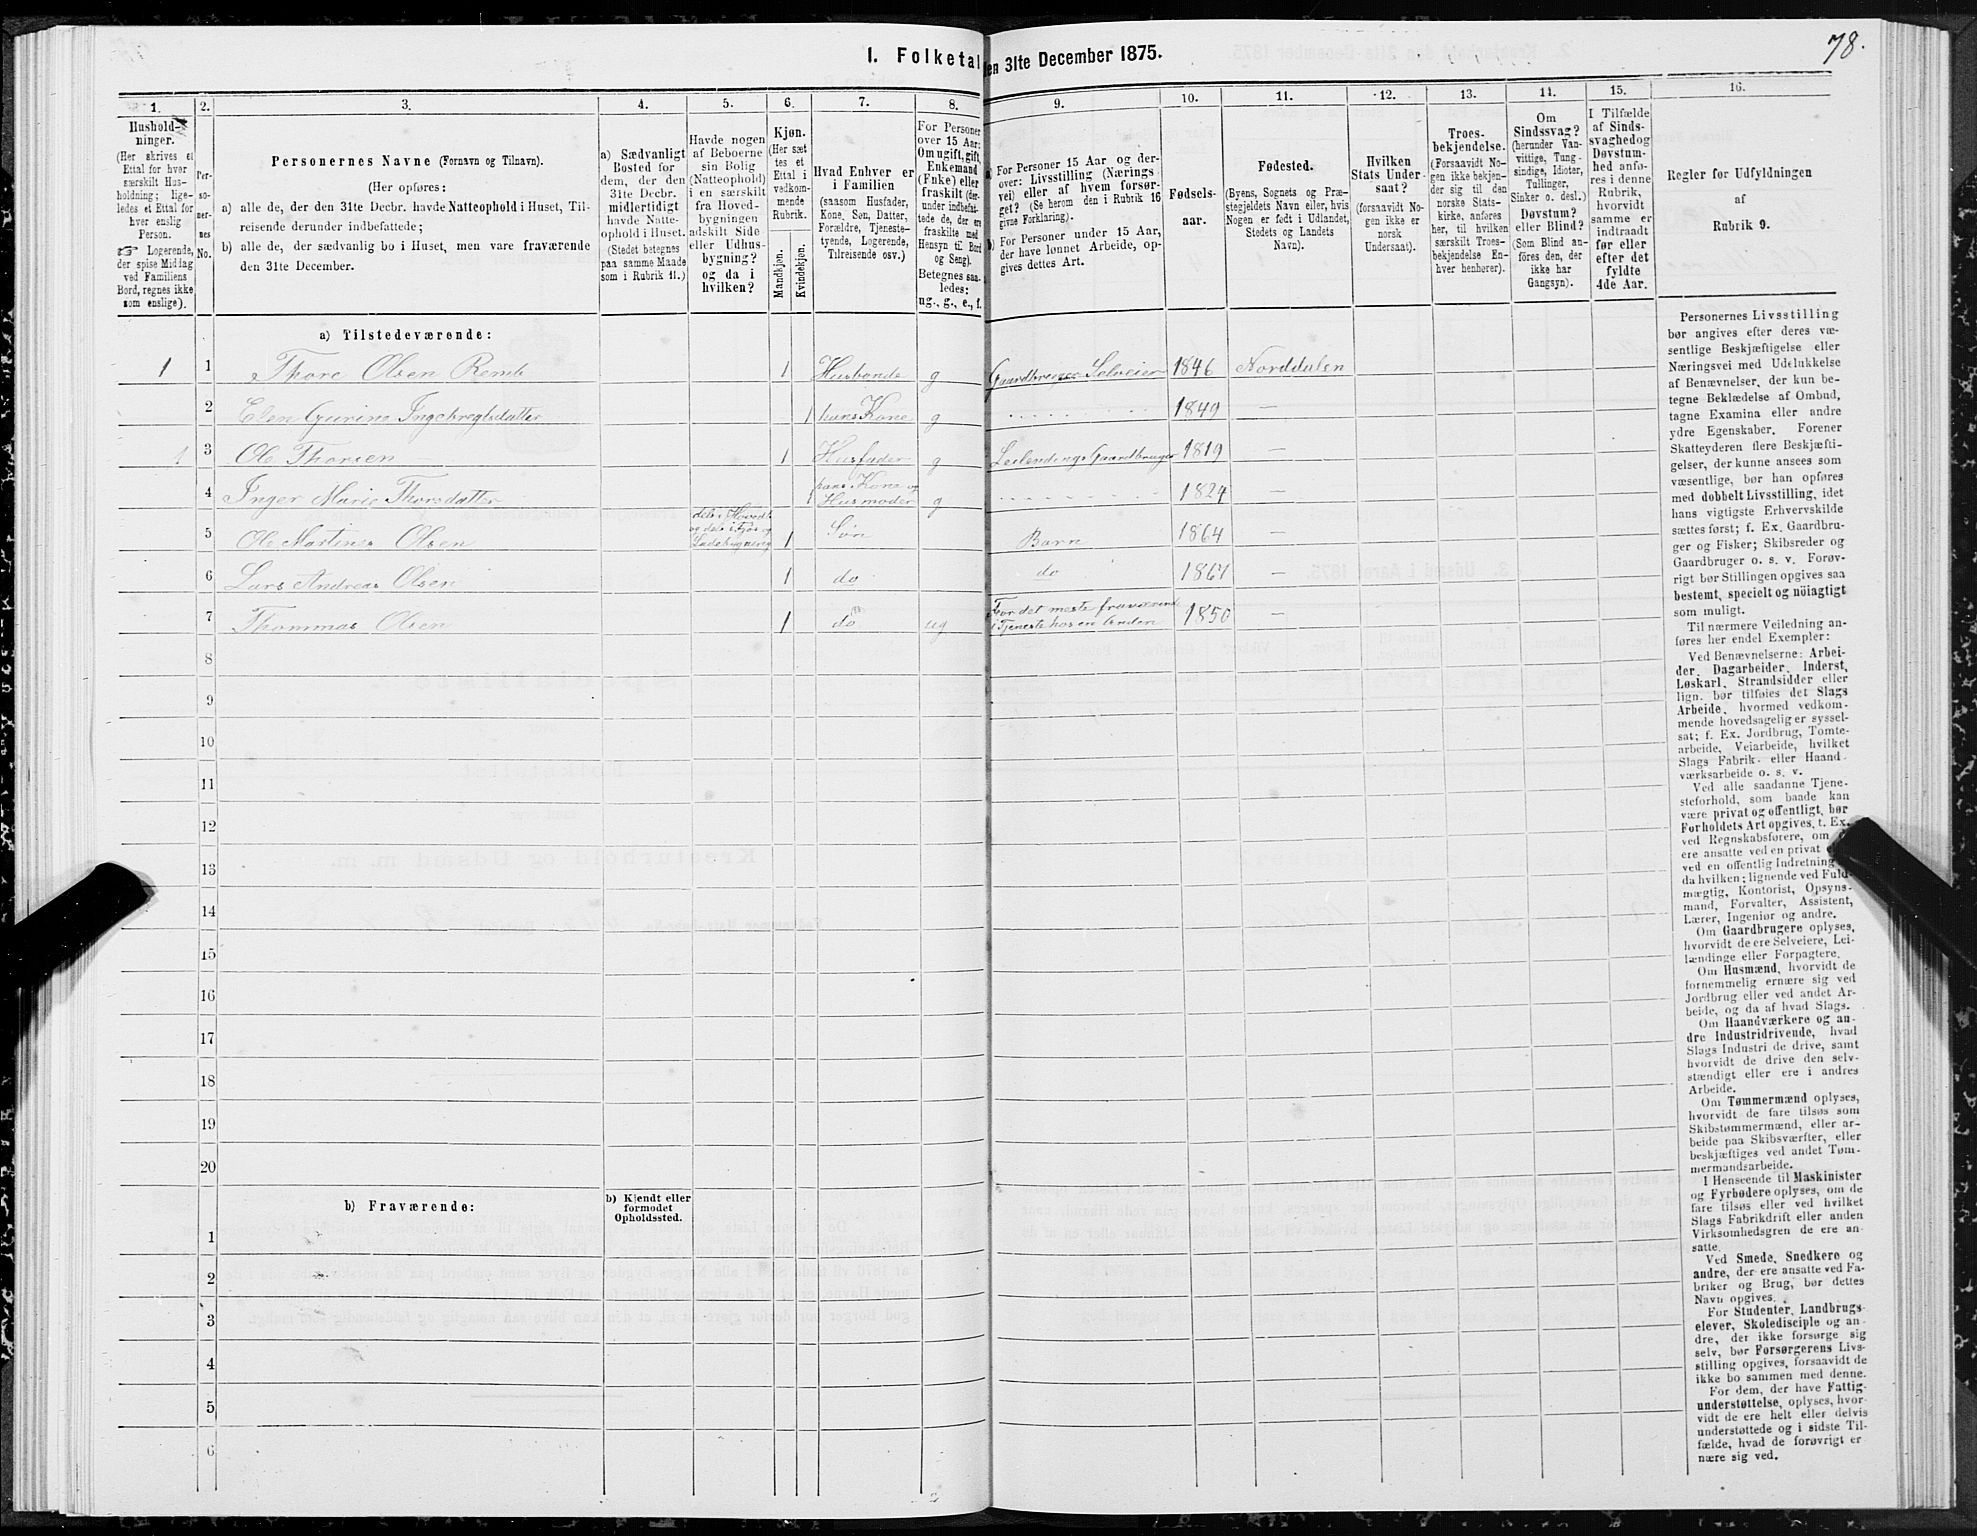 78.
I. Folketal den 31te December 1875.
1. 2. 3. 4. 5. 6. 7. 8. 9. 10. 11. 12. 13. 14. 15. 16.
Hushold-
ninger.
(Her skrives et
Ettal for hver
særskilt Hus-
holdning; lige-
ledes et Ettal for
hver enslig
Person.
☞ Logerende,
der spise Middag
ved Familiens
Bord, regnes ikke
som enslige).
Per-
so-
ner-
nes
No.
Personernes Navne (Fornavn og Tilnavn).
(Her opføres:
a) alle de, der den 31te Decbr. havde Natteophold i Huset, Til-
reisende derunder indbefattede;
b) alle de, der sædvanlig bo i Huset, men vare fraværende
den 31te December.
a) Sædvanligt
Bosted for
dem, der den
31te Decbr.
midlertidigt
havde Natte-
ophold i Huset.
(Stedet betegnes
paa samme Maade
som i Rubrik 11.)
Havde nogen
af Beboerne
sin Bolig
(Natteophold)
i en særskilt
fra Hoved-
bygningen
adskilt Side
eller Udhus-
bygning?
og da i
hvilken?
Kjøn.
(Her sæt
tes et
Ettal i
vedkom-
mende
Rubrik.
Mandkjøn.
Kvindekjøn.
Hvad Enhver er
i Familien
(saasom Husfader,
Kone, Søn, Datter,
Forældre, Tjeneste-
tyende, Logerende,
Tilreisende osv.)
For Personer
over 15 Aar:
Om ugift, gift,
Enkemand
(Enke) eller
fraskilt (der-
under indbefat-
tede de, der ere
fraskilte med
Hensyn til Bord
og Seng).
Betegnes saa-
ledes:
ug., g., e., f.
a) For Personer 15 Aar og der-
over: Livsstilling (Nærings
vei) eller af hvem forsør-
get? (Se herom den i Rubrik 16
givne Forklaring).
b) For Personer under 15 Aar,
der have lønnet Arbeide, op-
gives dettes Art.
Fødsels-
aar.
Fødested.
(Byens, Sognets og Præ-
stegjeldets Navn eller, hvis
Nogen er født i Udlandet,
Stedets og Landets
Navn).
Hvilken
Stats Under-
saat?
(forsaavidt No-
gen ikke er
norsk
Undersaat).
Troes-
bekjendelse.
(Forsaavidt No-
gen ikke bekjen-
der sig til den
norske Stats-
kirke, anføres
her, til hvilken
særskilt Troes-
bekjendelse En-
hver henhører).
Om
Sindssvag?
(herunder Van-
vittige, Tung-
sindige, Idioter,
Tullinger,
Sinker o. desl.)
Døvstum?
eller Blind?
(Som Blind an-
føres den, der
ikke har
Gangsyn).
I Tilfælde
af Sinds-
svaghed og
Døvstum-
hed anfø-
res i denne
Rubrik,
hvorvidt
samme er
indtraadt
før eller
efter det
fyldte
4de Aar.
Regler for Udfyldningen
af
Rubrik 9.
a) Tilstedeværende:
1 1 Thore Olsen Remb 1 Husbonde g Gaardbruger Selveier 1846 Norddalen
2 Elen Gurine Ingebregtsdatter 1 hans Kone g 1849 —
1 3 Ole Thorsen 1 Husfader g Leilendings Gaardbruger 1819 —
4 Inger Marie Thorsdatter 1 hans Kone og Husmoder g 1824 —
5 Ole Martinus Olsen 1 Søn Barn 1864 —
6 Lars Andreas Olsen 1 do do 1867 —
7 Thommas Olsen 1 do ug For det meste fraværende i Tjeneste hos en Anden 1850 —
8
9
10
11
12
13
14
15
16
17
18
19
20
b) Fraværende:
b) Kjendt eller
formodet
Opholdssted.
1
2
3
4
5
6
Personernes Livsstilling
bør angives efter deres væ-
sentlige Beskjæftigelse eller
Næringsvei med Udelukkelse
af Benævnelser, der kun be-
tegne Beklædelse af Ombud,
tagne Examina eller andre
ydre Egenskaber. Forener
Skatteyderen flere Beskjæfti-
gelser, der kunne ansees som
væsentlige, bør han opføres
med dobbelt Livsstilling, idet
hans vigtigste Erhvervskilde
sættes først; f. Ex. Gaardbru-
ger og Fisker; Skibsreder og
Gaardbruger o. s. v. Forøv-
rigt bør Stillingen opgives saa
bestemt, specielt og nøiagtigt
som muligt.
Til nærmere Veiledning an-
føres her endel Exempler:
Ved Benævnelserne: Arbei-
der, Dagarbeider, Inderst,
Løskarl, Strandsidder eller
lign. bør tilføies det Slags
Arbeide, hvormed vedkom-
mende hovedsagelig er syssel-
sat; f. Ex. Jordbrug, Tomte-
arbeide, Veiarbeide, hvilket
Slags Fabrik- eller Haand-
værksarbeide o. s. v.
Ved alle saadanne Tjene-
steforhold, som baade kan
være privat og offentligt, bør
Forholdets Art opgives, t. Ex.
ved Regnskabsførere, om
ere ansatte ved en privat
ved en offentlig Indretning
da hvilken; lignende ved Fuld-
mægtig, Kontorist, Opsyns-
mand, Forvalter, Assistent,
Lærer, Ingeniør og andre.
Om Gaardbrugere oplyses,
hvorvidt de ere Selveiere, Lei-
lændinge eller Forpagtere.
Om Husmænd, hvorvidt de
fornemmelig ernære sig ved
Jordbrug eller ved andet Ar-
beide, og da af hvad Slags.
Om Haandværkere og an-
dre Industridrivende, hvad
Slags Industri de drive, samt
hvorvidt de drive den selv-
stændigt eller ere i andres
Arbeide.
Om Tømmermænd oplyses,
hvorvidt de fare tilsøs som
Skibstømmermænd, eller ar-
beide paa Skibsværfter, eller
beskjæftiges ved andet Tøm-
mermandsarbeide.
I Henseende til Maskinister
og Fyrbødere oplyses, om de
fare tilsøs eller ved hvilket
Slags Fabrikdrift eller anden
Virksomhedsgren de ere an-
satte.
Ved Smede, Snedkere og
andre, der ere ansatte ved Fa-
briker og Brug, bør dettes
Navn opgives.
For Studenter, Landbrugs-
elever, Skoledisciple og an-
dre, der ikke forsørge sig
selv, bør Forsørgerens Livs-
stilling opgives, forsaavidt de
ikke bo sammen med denne.
For dem, der have Fattig-
understøttelse, oplyses, hvor-
vidt de ere helt eller delvis
understøttede og i sidste Til-
fælde, hvad de forøvrigt er
nære sig ved.